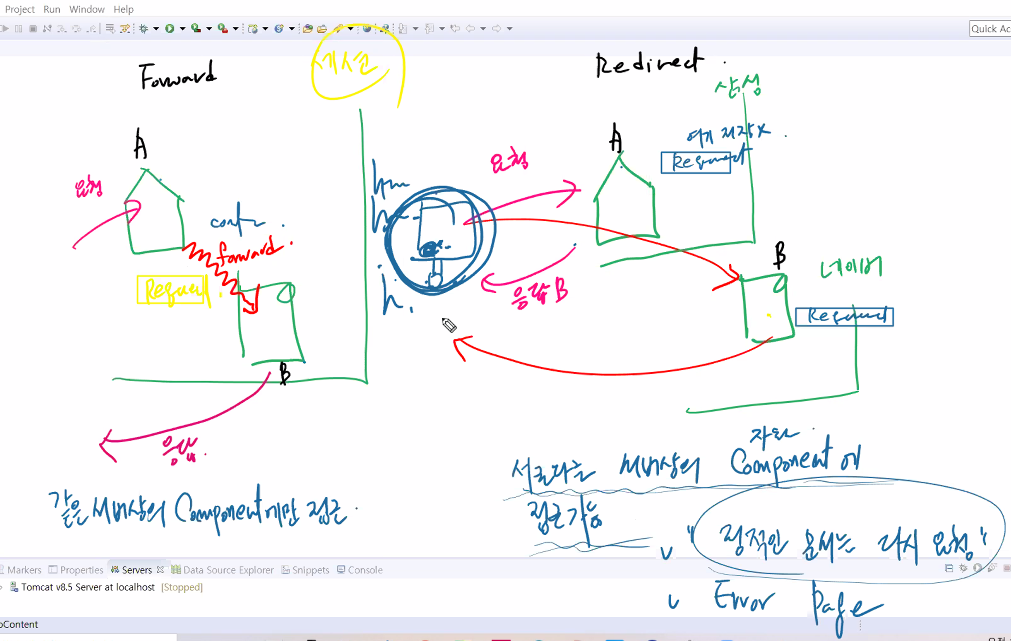 Project Run Window Help
Quick Ac
Forward
세션
Redirect .
삼성
A
요청
forward .
Request
B
응답
요청
응답 B
A
여기 저장 x
Request
B
네이버
Request
같은 서버상의 Component에만 접근
서로 다른 서버상의 Component에
자원
접근가능
"정적인 문서는 다시 요청"
Error Page
Markers Properties Servers Data Source Explorer Snippets Console
Tomcat v8.5 Server at localhost [Stopped]
oContent